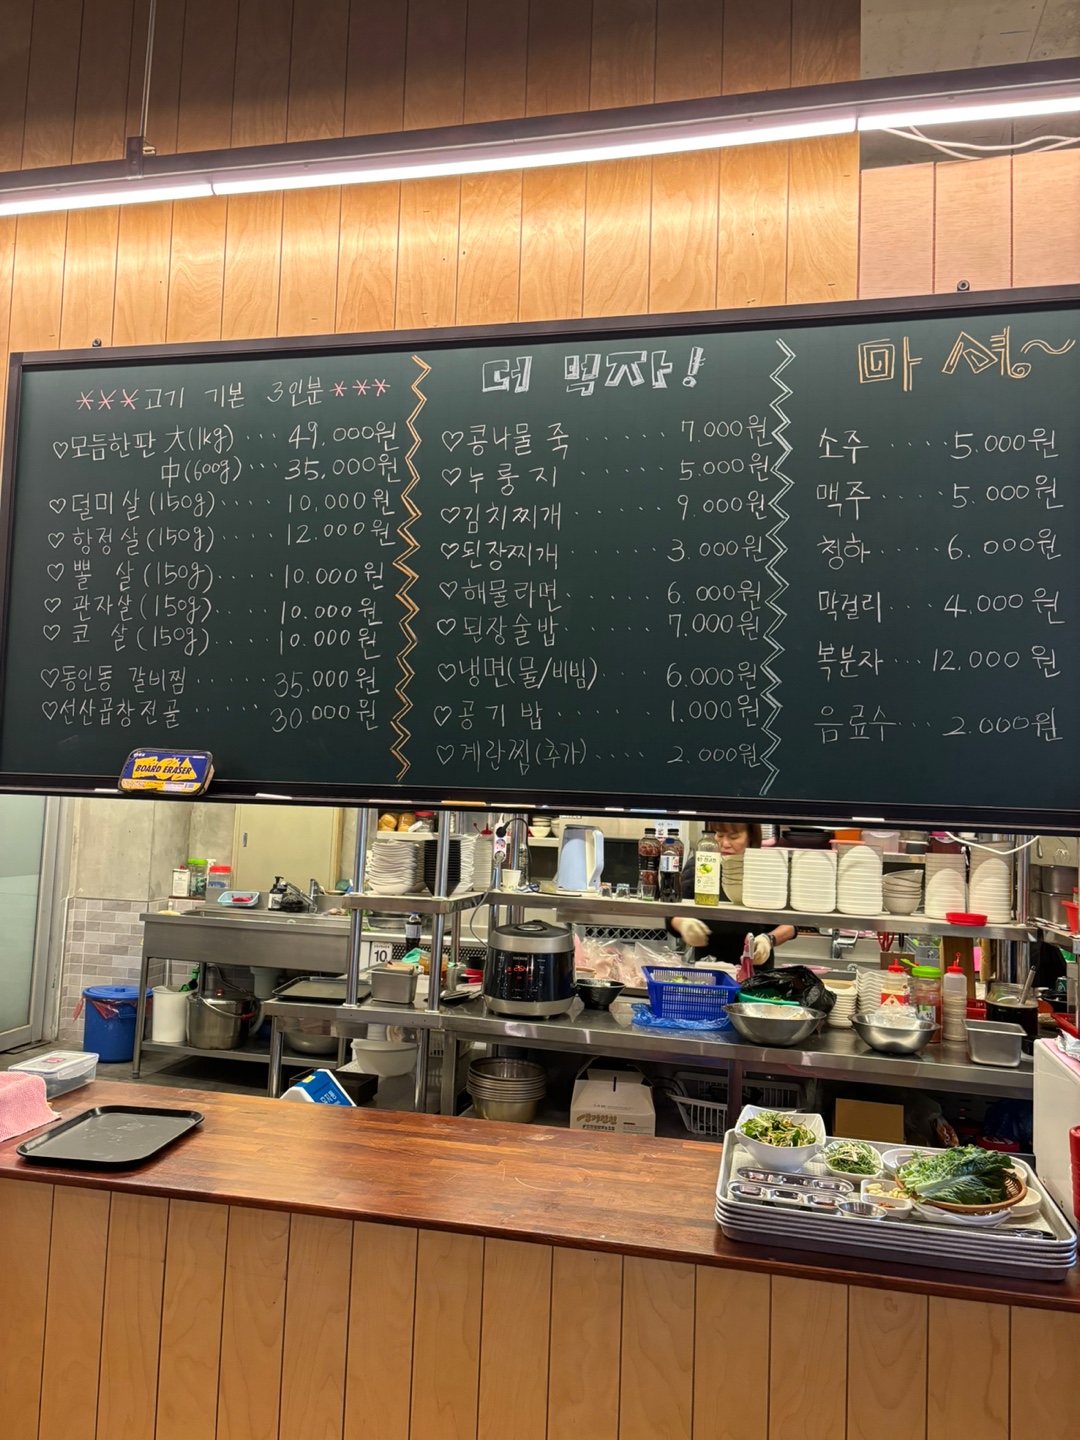 ***고기 기본 3인분***
♡모듬한판 大(1kg) ··· 49,000원
中(600g) ··· 35,000원
♡덜미살(150g) ···· 10,000원
♡항정살(150g) ···· 12.000원
♡뽈 살(150g) ····· 10.000원
♡관자살(150g) ····· 10.000원
♡코 살(150g) ····· 10.000원
♡동인동 갈비찜 ······ 35.000원
♡선산곱창전골 ······ 30.000원
더 먹자!
♡콩나물 죽 ······ 7.000원
♡누룽지 ······ 5.000원
♡김치찌개 ······ 9.000원
♡된장찌개 ······ 3.000원
♡해물라면 ······ 6.000원
♡된장술밥 ······ 7.000원
♡냉면(물/비빔) ···· 6.000원
♡공기밥 ······ 1.000원
♡계란찜(추가) ···· 2.000원
마셔~
소주 ····· 5.000원
맥주 ····· 5.000원
청하 ····· 6.000원
막걸리 ···· 4.000원
복분자 ··· 12.000원
음료수 ··· 2.000원
BOARD ERASER
10